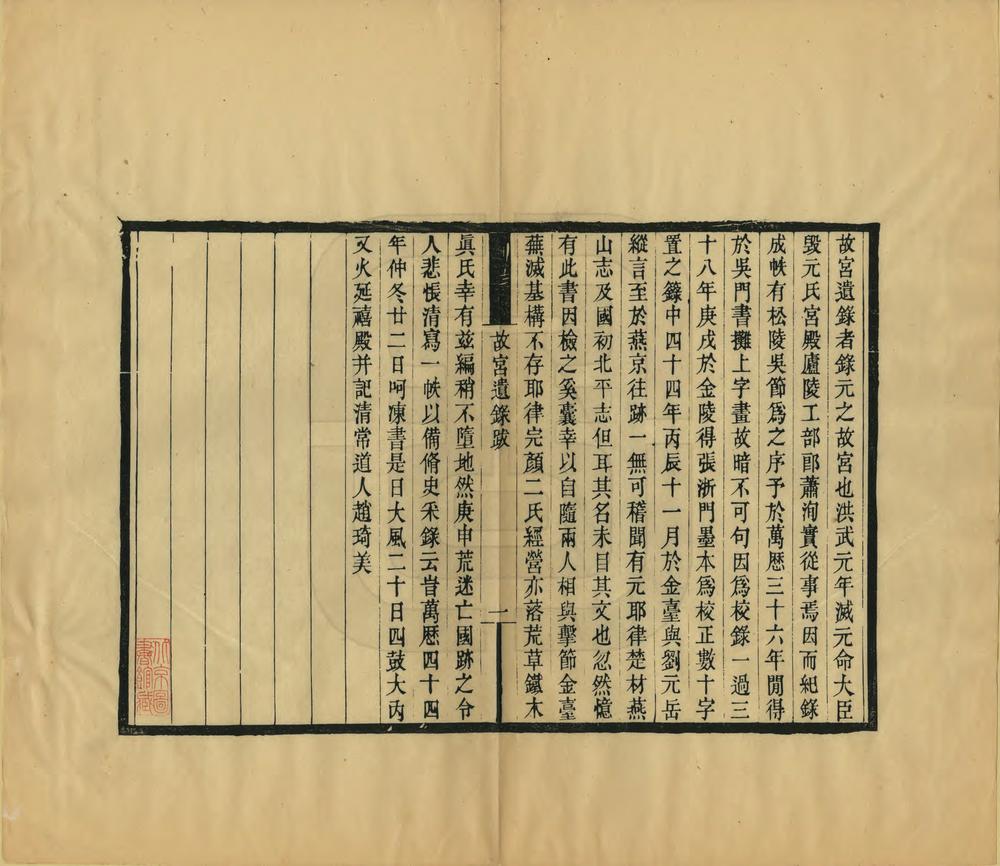 故宮遺錄者錄元之故宮也洪武元年滅元命大臣
毀元氏宮殿廬陵工部郎蕭洵實從事焉因而紀錄
成帙有松陵吳節爲之序予於萬厯三十六年閒得
於吳門書攤上字畫故暗不可句因爲校錄一過三
十八年庚戌於金陵得張浙門墨本爲校正數十字
置之籙中四十四年丙辰十一月於金臺與劉元岳
縱言至於燕京往跡一無可稽聞有元耶律楚材燕
山志及國初北平志但耳其名未目其文也忽然憶
有此書因檢之奚囊幸以自隨兩人相與擊節金臺
蕪滅基構不存耶律完顏二氏經營亦落荒草鐵木
故宮遺錄跋
一
眞氏幸有兹編稍不墮地然庚申荒迷亡國跡之令
人悲悵清寫一帙以備脩史采錄云旹萬厯四十四
年仲冬廿二日呵凍書是日大風二十日四鼓大內
又火延禧殿并記清常道人趙琦美